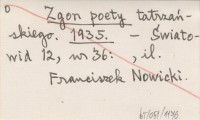 Zgon poety tatrzań-
skiego. 1935. – Świato-
wid 12, nr 36: , il.
Franciszek Nowicki.